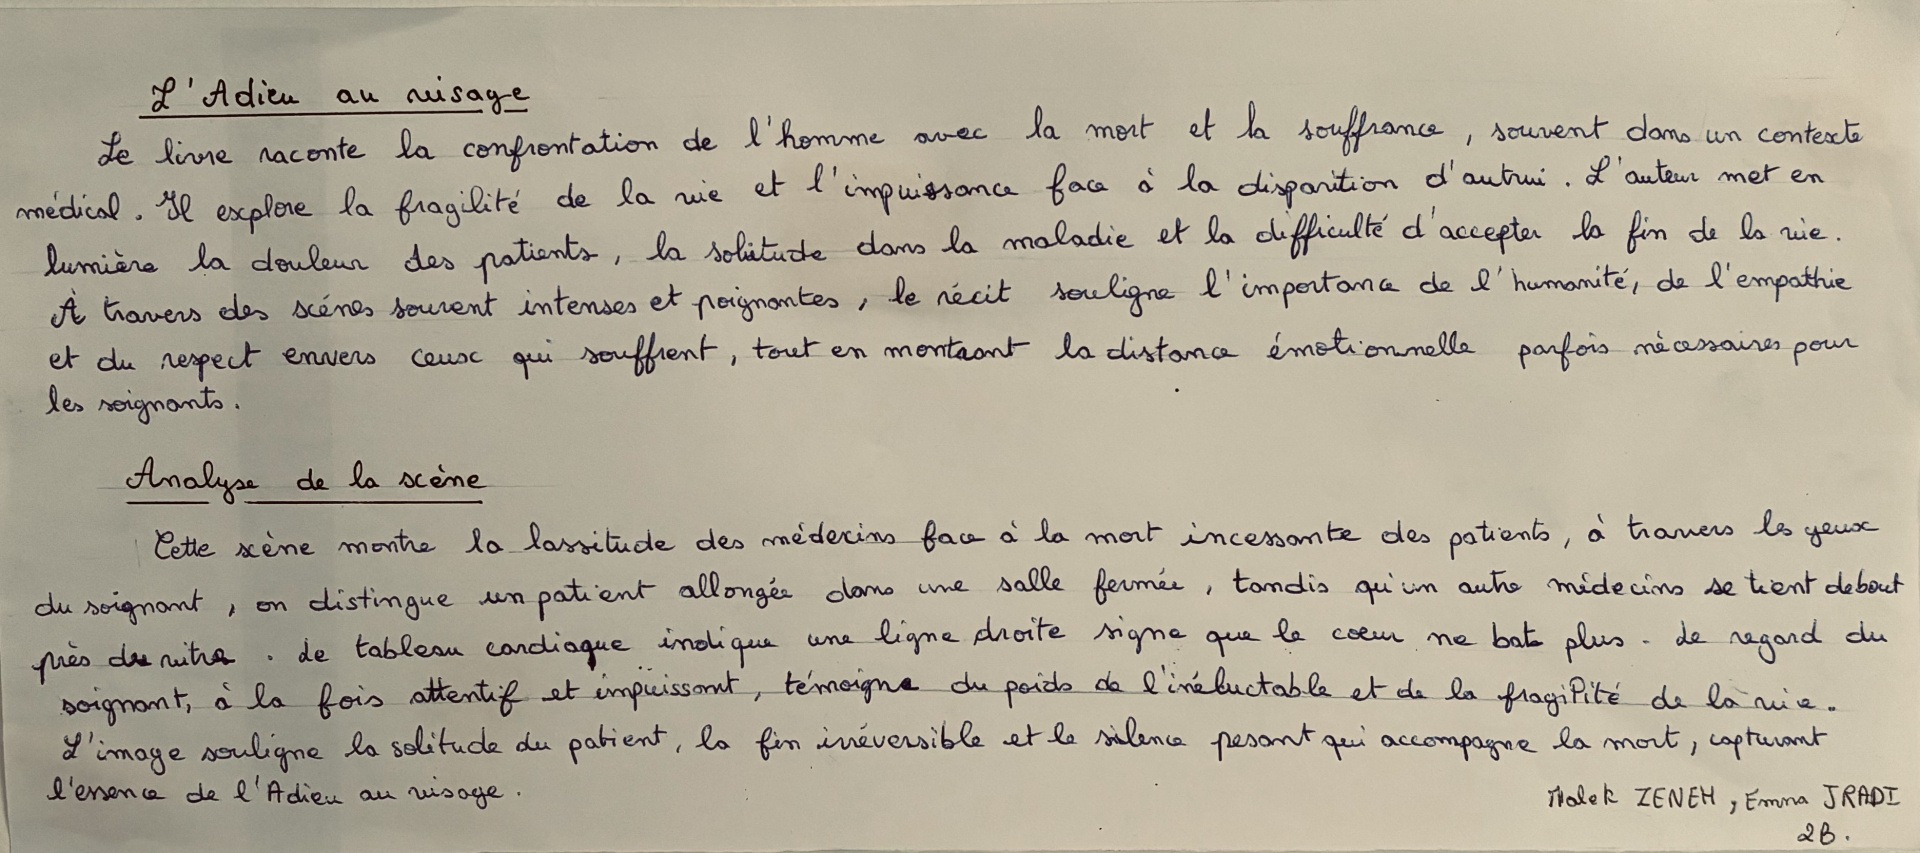 L'Adieu au visage
Le livre raconte la confrontation de l'homme avec la mort et la souffrance, souvent dans un contexte
médical. Il explore la fragilité de la vie et l'impuissance face à la disparition d'autrui. L'auteur met en
lumière la douleur des patients, la solitude dans la maladie et la difficulté d'accepter la fin de la vie.
À travers des scénes souvent intenses et poignantes, le récit souligne l'importance de l'humanité, de l'empathie
et du respect envers ceux qui souffrent, tout en montrant la distance émotionnelle parfois nécessaires pour
les soignants.
Analyse de la scène
Cette scène montre la lassitude des médecins face à la mort incessante des patients, à travers les yeux
du soignant, on distingue un patient allongée dans une salle fermée, tandis qu'un autre médecins se tient debout
près du vitre. Le tableau cardiaque indique une ligne droite signe que le coeur ne bat plus. Le regard du
soignant, à la fois attentif et impuissant, témoigne du poids de l'inéluctable et de la fragilité de la vie.
L'image souligne la solitude du patient, la fin irréversible et le silence pesant qui accompagne la mort, capturant
l'essence de l'Adieu au visage.
Malek ZENEH, Emma JRADI
2B.